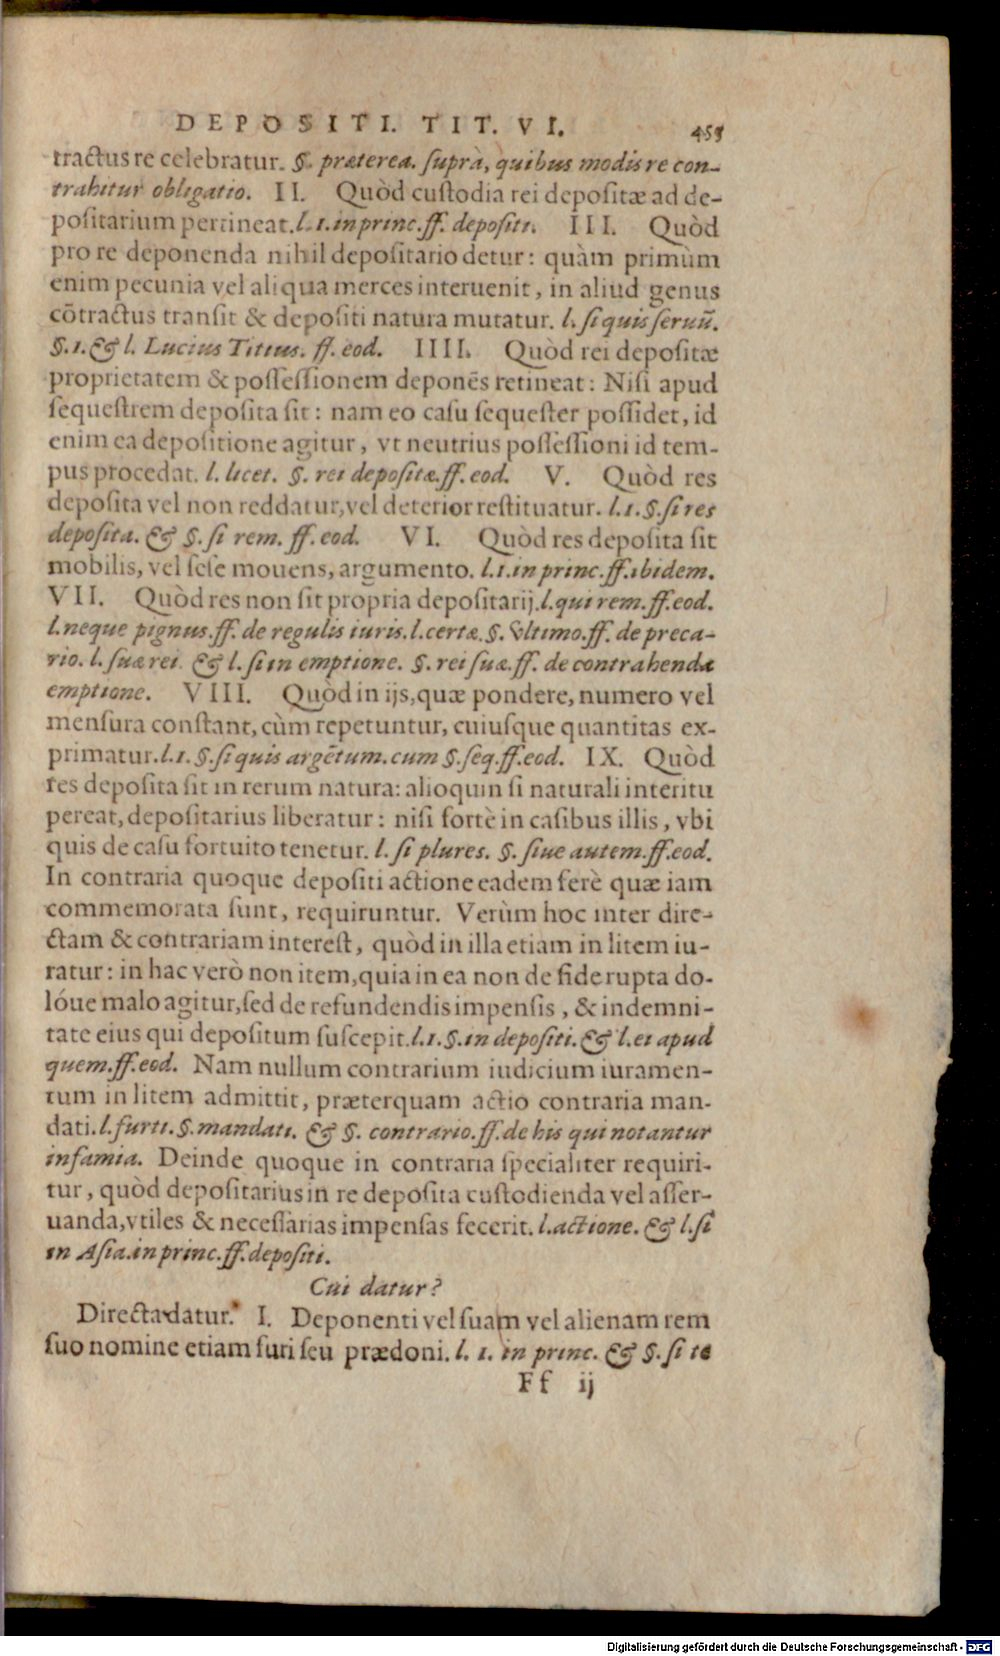 DEPOSITI. TIT. VI. 453
tractus re celebratur. §. præterea. suprà, quibus modis re con-
trahitur obligatio. II. Quòd custodia rei depositæ ad de-
positarium pertineat. l. 1. in princ. ff. depositi. III. Quòd
pro re deponenda nihil depositario detur: quàm primùm
enim pecunia vel aliqua merces interuenit, in aliud genus
cōtractus transit & depositi natura mutatur. l. si quis seruū.
§. 1. & l. Lucius Titius. ff. eod. IIII. Quòd rei depositæ
proprietatem & possessionem deponēs retineat: Nisi apud
sequestrem deposita sit: nam eo casu sequester possidet, id
enim ea depositione agitur, vt neutrius possessioni id tem-
pus procedat. l. licet. §. rei depositæ. ff. eod. V. Quòd res
deposita vel non reddatur, vel deterior restituatur. l. 1. §. si res
deposita. & §. si rem. ff. eod. VI. Quòd res deposita sit
mobilis, vel sese mouens, argumento. l. 1. in princ. ff. ibidem.
VII. Quòd res non sit propria depositarij. l. qui rem. ff. eod.
l. neque pignus. ff. de regulis iuris. l. certæ. §. vltimo. ff. de preca-
rio. l. suæ rei. & l. si in emptione. §. rei suæ. ff. de contrahenda
emptione. VIII. Quòd in ijs, quæ pondere, numero vel
mensura constant, cùm repetuntur, cuiusque quantitas ex-
primatur. l. 1. §. si quis argētum. cum §. seq. ff. eod. IX. Quòd
res deposita sit in rerum natura: alioquin si naturali interitu
pereat, depositarius liberatur: nisi fortè in casibus illis, vbi
quis de casu fortuito tenetur. l. si plures. §. siue autem. ff. eod.
In contraria quoque depositi actione eadem ferè quæ iam
commemorata sunt, requiruntur. Verùm hoc inter dire-
ctam & contrariam interest, quòd in illa etiam in litem iu-
ratur: in hac verò non item, quia in ea non de fide rupta do-
lóue malo agitur, sed de refundendis impensis, & indemni-
tate eius qui depositum suscepit. l. 1. §. in depositi. & l. ei apud
quem. ff. eod. Nam nullum contrarium iudicium iuramen-
tum in litem admittit, præterquam actio contraria man-
dati. l. furti. §. mandati. & §. contrario. ff. de his qui notantur
infamia. Deinde quoque in contraria specialiter requiri-
tur, quòd depositarius in re deposita custodienda vel asser-
uanda, vtiles & necessarias impensas fecerit. l. actione. & l. si
in Asia. in princ. ff. depositi.
Cui datur?
Directa datur. I. Deponenti vel suam vel alienam rem
suo nomine etiam furi seu prædoni. l. 1. in princ. & §. si te
Ff ij
Digitalisierung gefördert durch die Deutsche Forschungsgemeinschaft - DFG